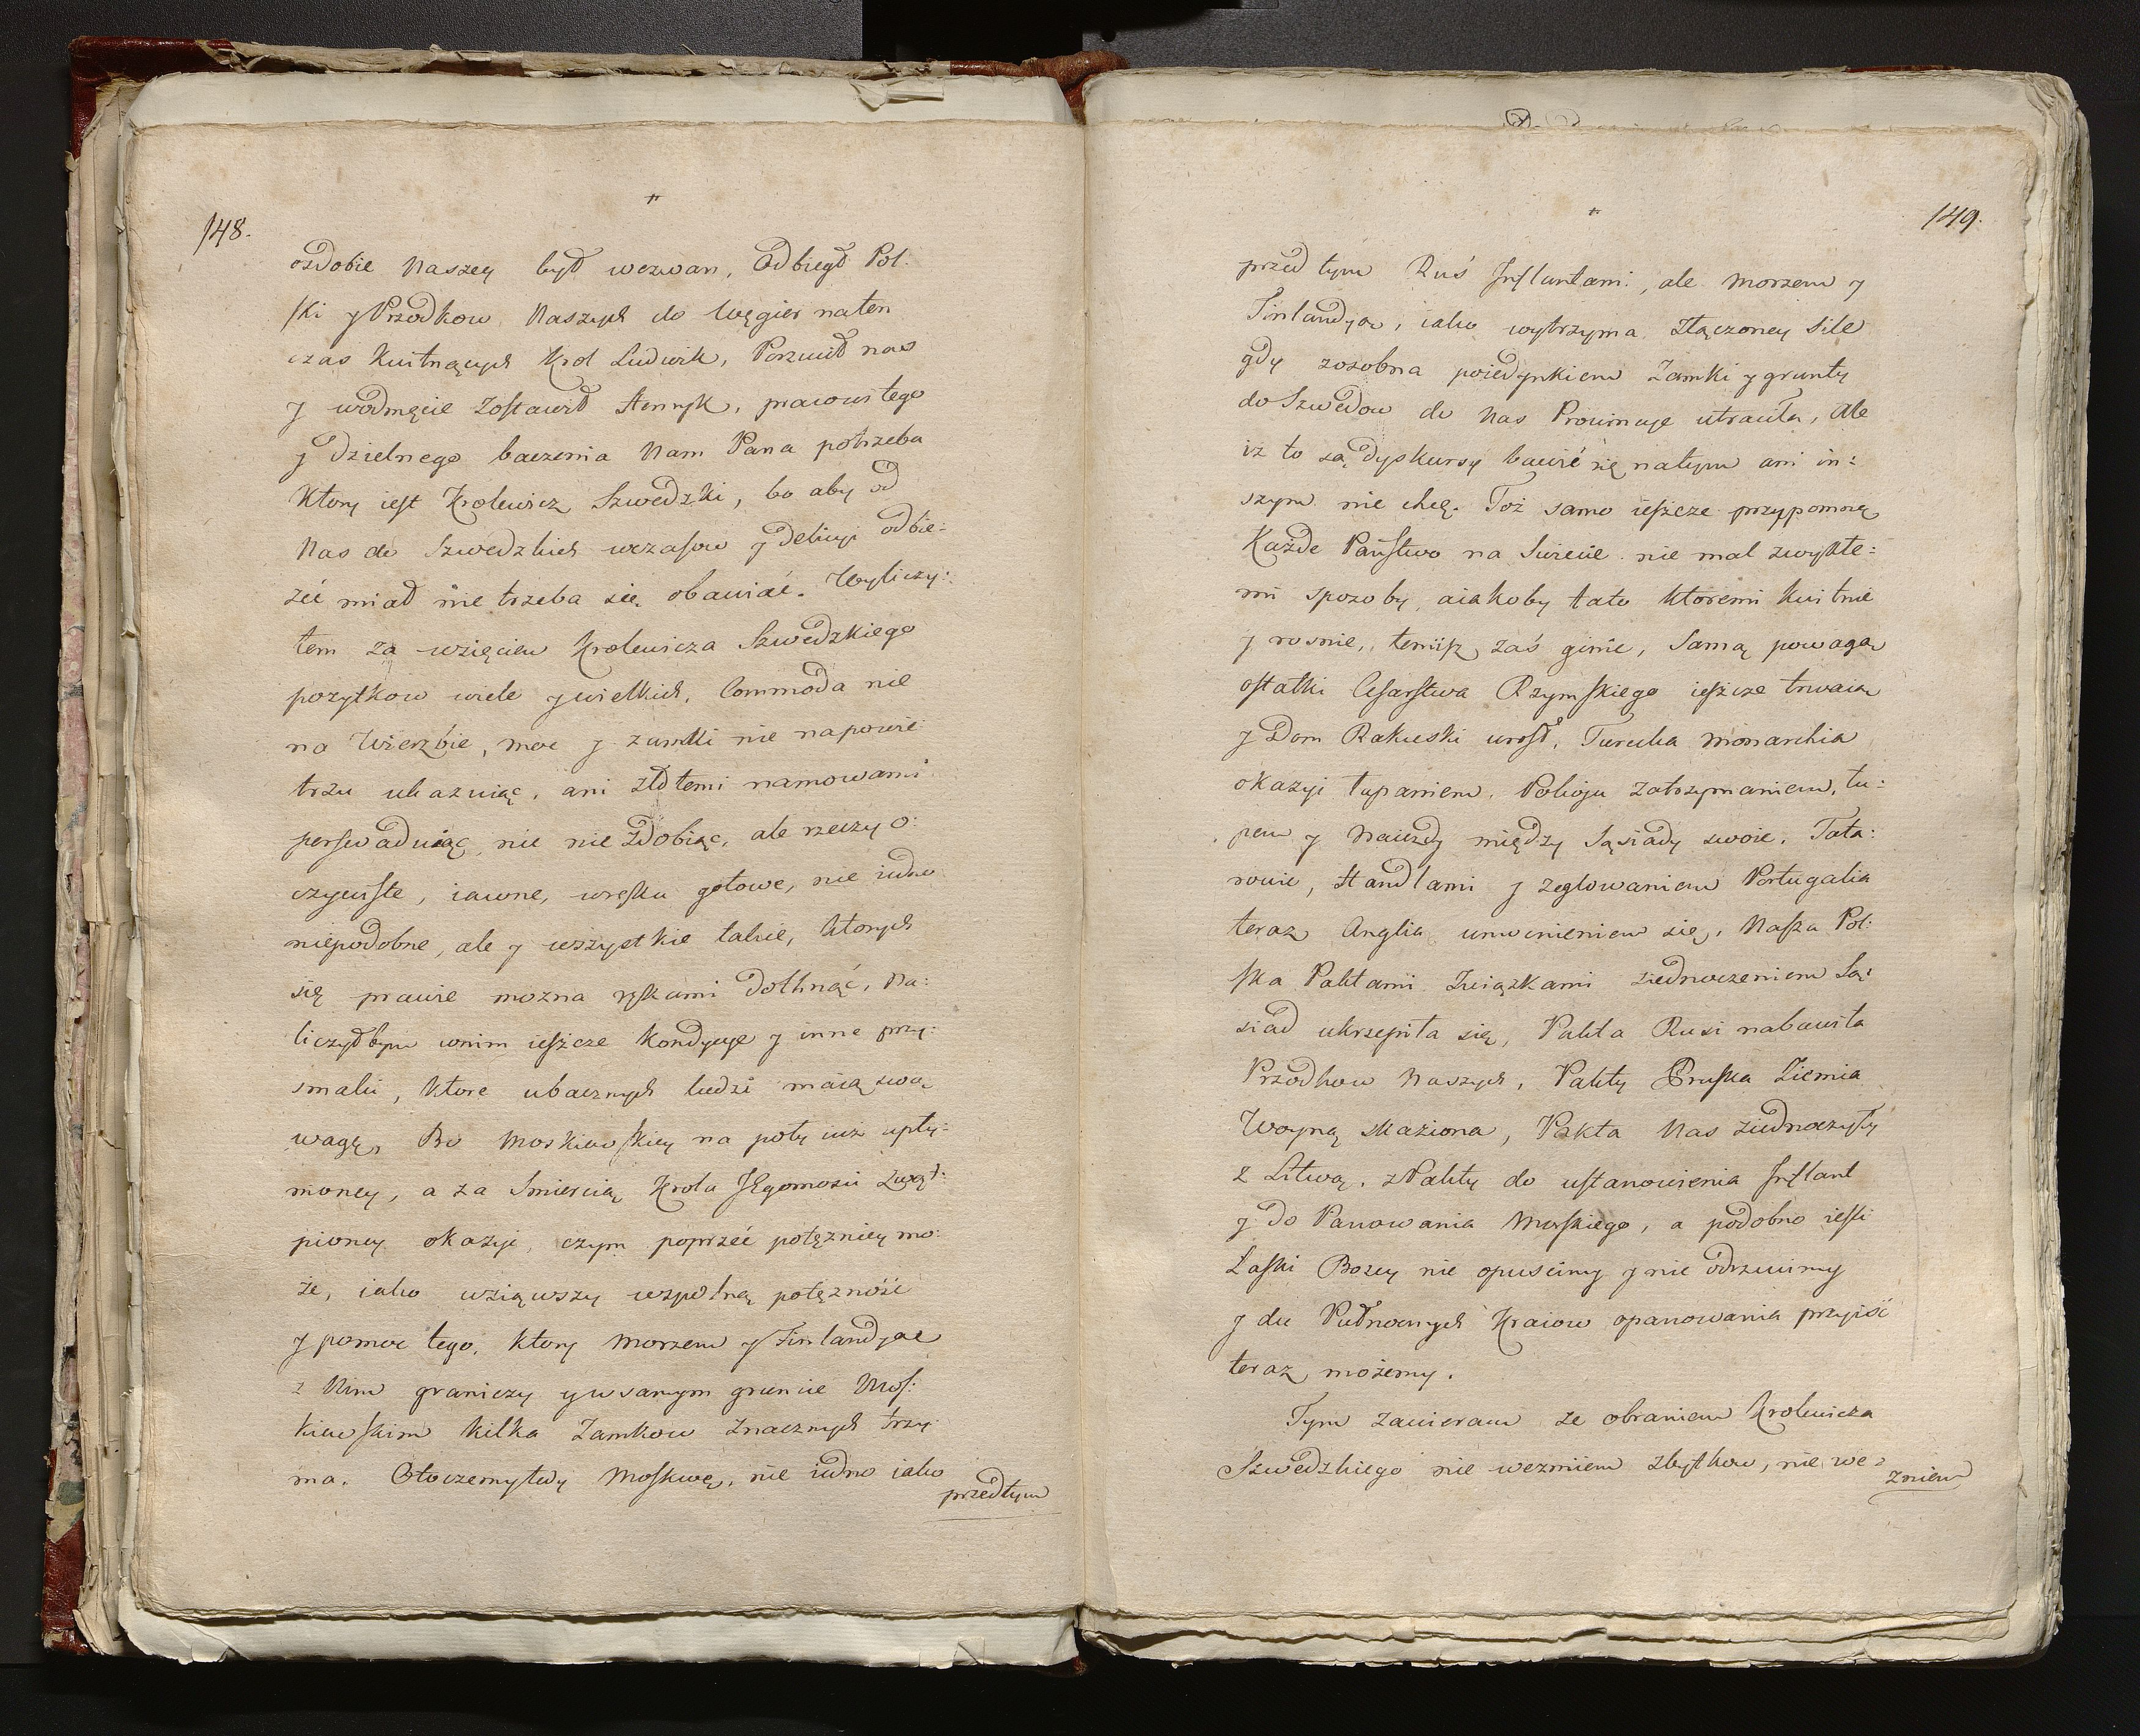 148.
ozdobie Naszey był wezwan, Odbiegł Pol:
ski y Przodkow Naszych do Węgier naten
czas Kwitnących Krol Ludwik, Porzuił nas
y wodmęcie Zostawił Henryk, prawowitego
y Dzielnego baczenia Nam Pana potrzeba
Ktory iest Krolewicz Szwedzki, bo aby od
Nas do Szwedzkich wczasow y Delicyi odbie:
żeć miał nie trzeba się obawiać. Wyliczy:
łem za wzięciem Krolewicza Szwedzkiego
pozytkow wiele y wielkich, Commoda nie
na Wierzbie, moc y zamki nie napowie
trzu ukazuiąc, ani złotemi namowami
perswaduiąc, nic nie zdobiąc, ale rzeczy o:
czywiste, iawne, wręku gotowe, nie iedno
niepodobne, ale y wszystkie takie, ktorych
się prawie mozna rękami Dotknąć, Na:
liczyłbym wnim ieszcze Kondycye y inne przy:
smaki, Ktore ubacznych ludzi maią swą
wagę, Bo Moskiewskiey na poły iuż upły:
nioney, a za Smiercią Krola JEgomosci Zwąt:
pioney okazyi, czym poprzeć potęzniey mo:
że, iako wziąwszy wspolną potęzność
y pomoc tego, Ktory Morzem y Finlandyae
z Nim graniczy y w samym gruncie Mos:
kiewskim Kilka Zamkow Znacznych trzy
ma. Otoczemy tedy Moskwę, nie iedno iako
przedtym
149.
przed tym Rus Inflantami, ale Morzem y
Finlandyą, iako wytrzyma Złączoney Sile
gdy zosobna poiedynkiem Zamki y grunty
do Szwedow do Nas Prowincye utraciła, Ale
iz to są Dyskursy bawić się natym ani in:
szym nie chcę. Toż samo ieszcze przypomnę
Każde Państwo na Swiecie nie mal zwykłe:
mi spozoby, aiakoby łato Ktoremi Kwitnie
y rosnie, temisz zaś ginie, Samą powagą
ostatki Cesarstwa Rzymskiego ieszcze trwaią
y Dom Rakuski urosł, Turecka Monarchia
okazyi łapaniem, Pokoju Zatrzymaniem, łu:
pem y Naiazdy między Sąsiady swoie, Tata:
rowie, Handlami y Zeglowaniem Portugalia
teraz Anglia umocnieniem się, Nasza Pol:
ska Paktami Związkami Ziednoczeniem Są:
siad ukrzepiła się, Pakta Rusi nabawiła
Przodkow Naszych, Pakty Pruska Ziemia
Woyną skaziona, Pakta Nas Ziednoczyły
z Litwą, z Pakty do ustanowienia Inflant
y do Panowania Morskiego, a podobno iesli
Łaski Bozey nie opuscimy y nie odrzucimy
y do Pułnocnych Kraiow opanowania przyiść
teraz możemy.
Tym Zawieram ze obraniem Krolewicza
Szwedzkiego nie wezmiem zbytkow, nie we:
zmiem